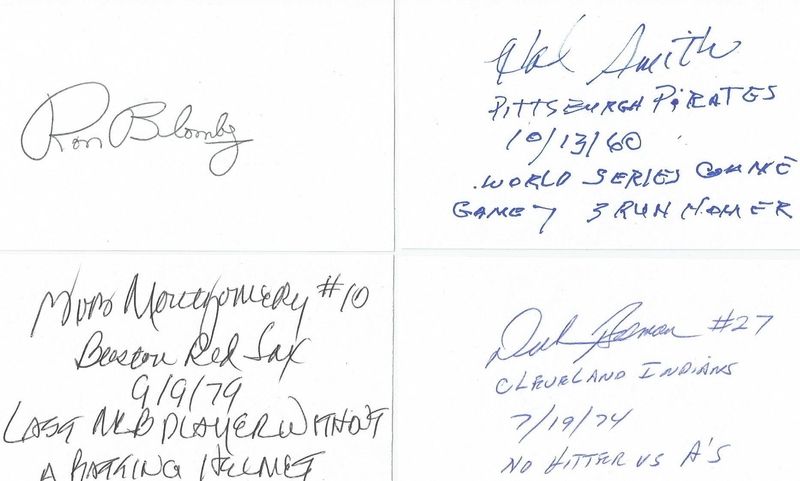 Ron Blomberg
Hal Smith
PITTSBURGH PIRATES
10/13/60
WORLD SERIES GAME
GAME 7 3 RUN HOMER
Bob Montgomery #10
Boston Red Sox
9/9/79
LAST MLB PLAYER WITHOUT
A BATTING HELMET
Dick Bosman #27
CLEVELAND INDIANS
7/19/74
NO HITTER VS A'S